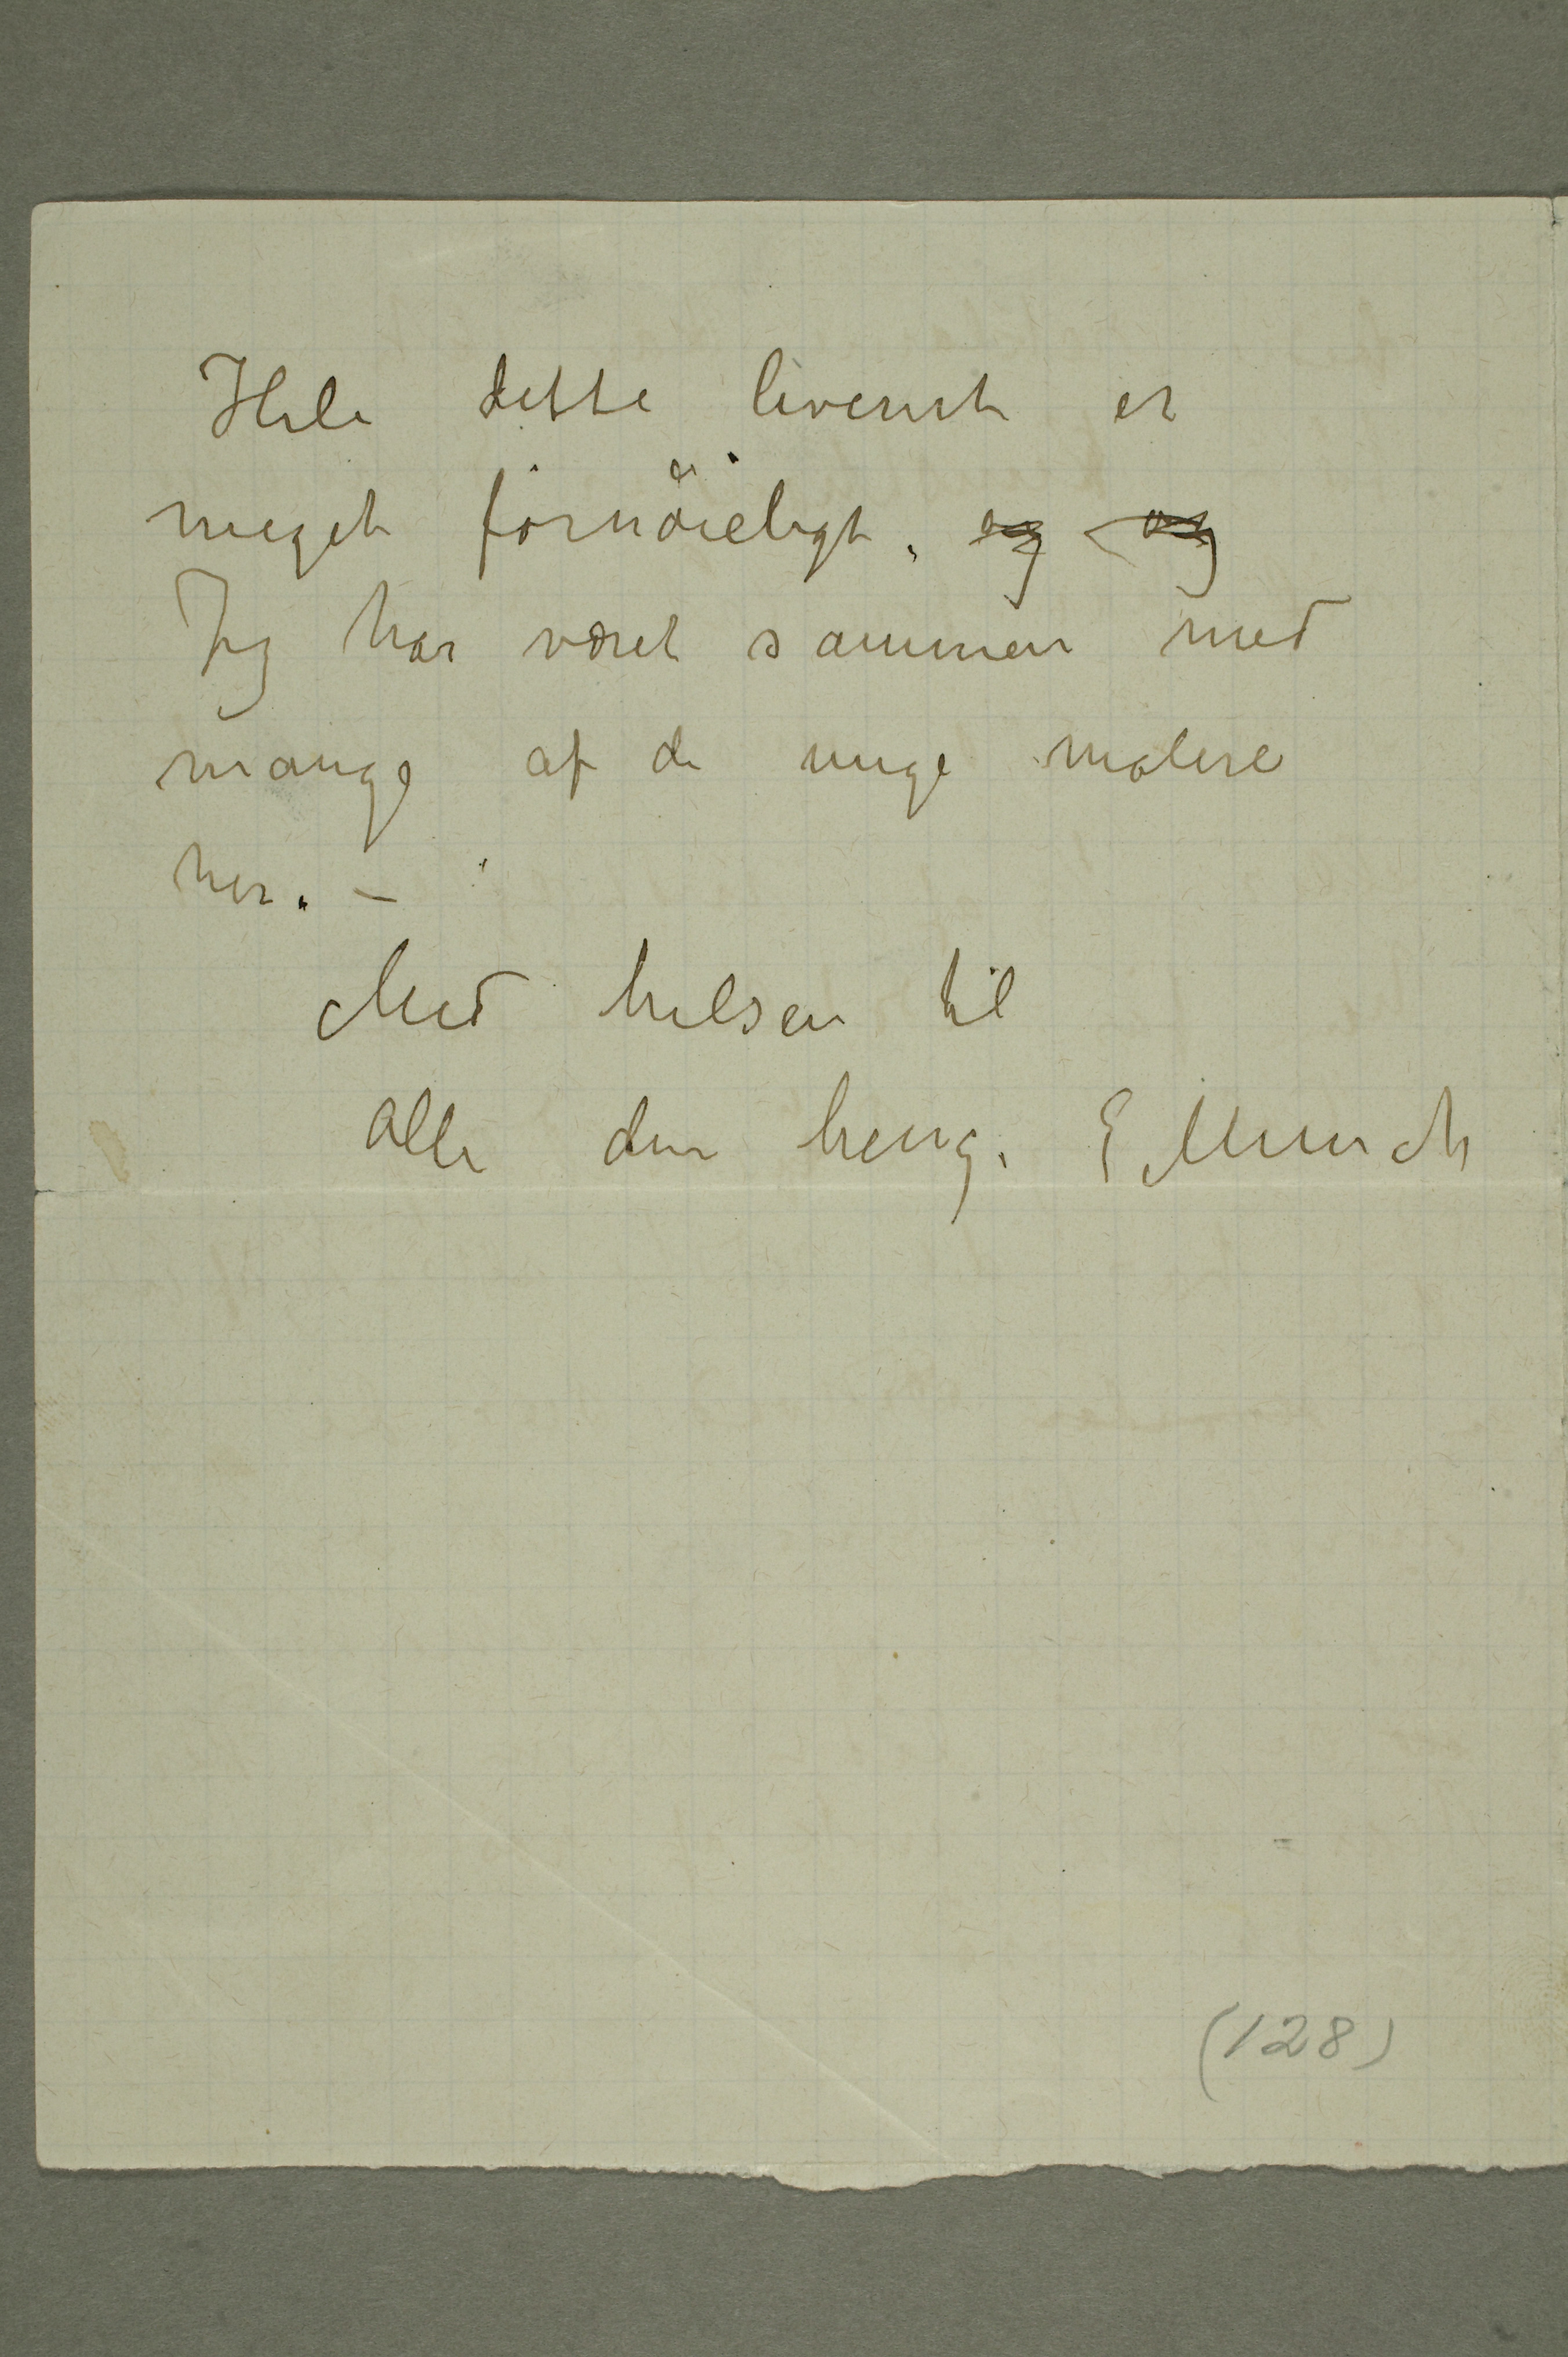 Hele dette livernt er
meget förnöieligt. og og
Jeg har været sammen med
mange af de unge malere
her. –
Med hilsen til
alle din heng. E Munch
(128)